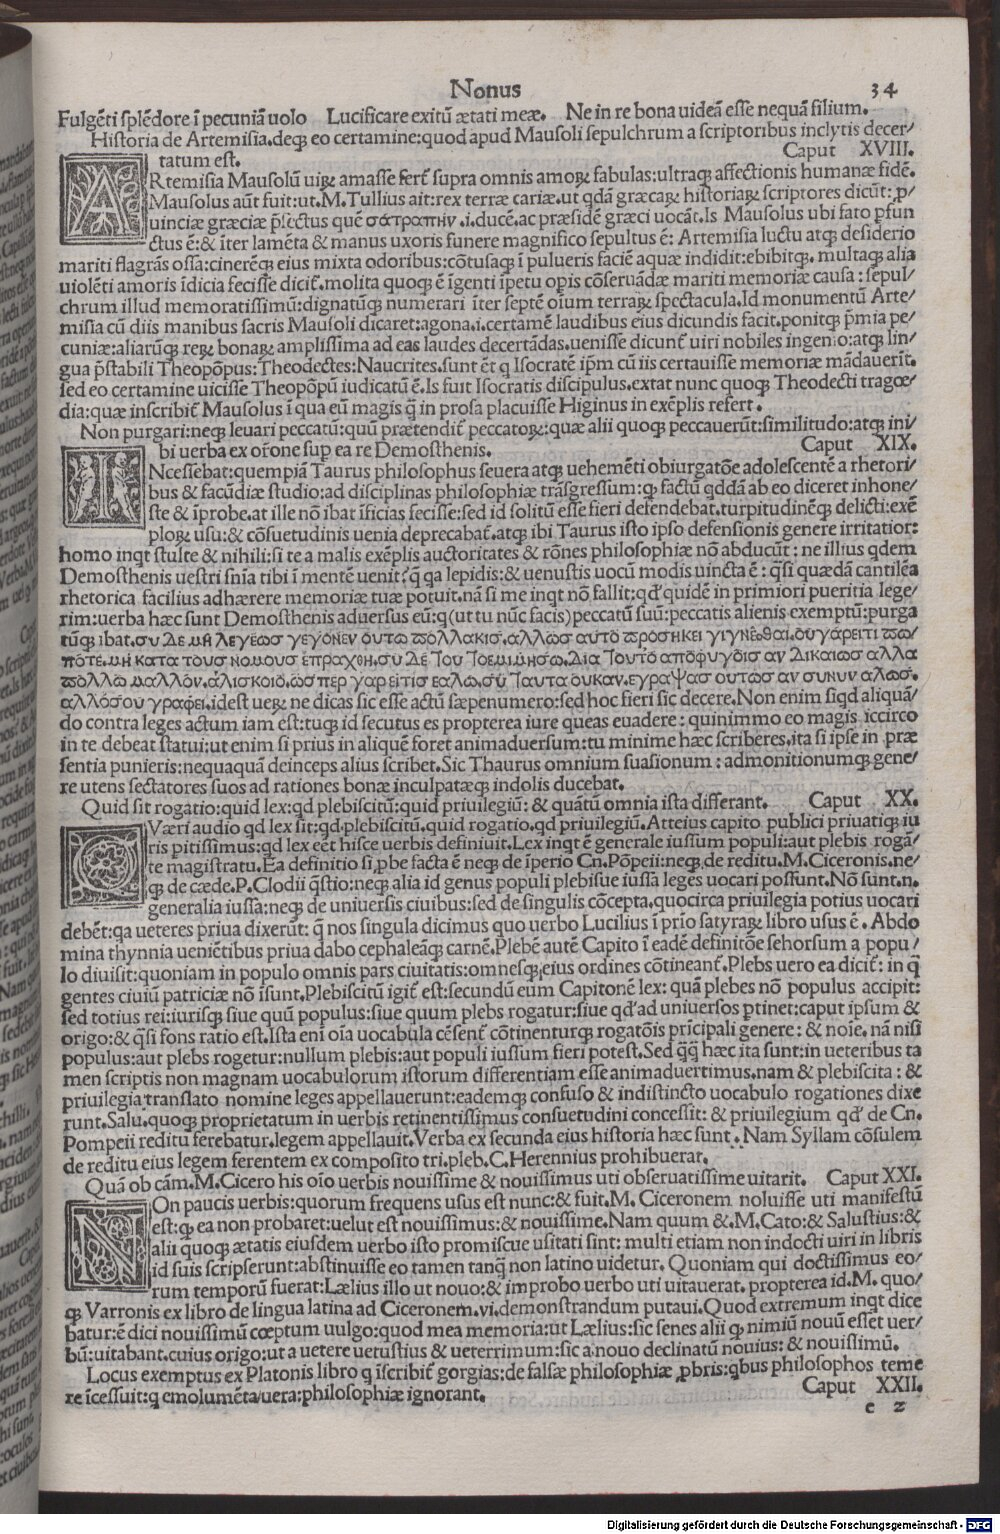 Nonus 34
Fulgēti splēdore ī pecuniā uolo Lucificare exitū ætati meæ. Ne in re bona uideā esse nequā filium.
Historia de Artemisia.deqꝫ eo certamine:quod apud Mausoli sepulchrum a scriptoribus inclytis decer/
tatum est. Caput XVIII.
ARtemisia Mausolū uiꝝ amasse fert̄ supra omnis amoꝝ fabulas:ultraqꝫ affectionis humanæ fidē.
Mausolus aūt fuit:ut.M.Tullius ait:rex terræ cariæ.ut qdā græcaꝝ historiaꝝ scriptores dicūt:ꝓ/
uinciæ græciæ p̄fectus quē σάτραπην.i.ducē.ac præsidē græci uocāt.Is Mausolus ubi fato pfun
ctus ē:& īter lamēta & manus uxoris funere magnifico sepultus ē: Artemisia luctu atqꝫ desiderio
mariti flagrās ossa:cinerēqꝫ eius mixta odoribus:cōtusaqꝫ ī pulueris faciē aquæ indidit:ebibitqꝫ. multaqꝫ alia
uiolēti amoris īdicia fecisse dicit̄.molita quoqꝫ ē īgenti īpetu opis cōseruādæ mariti memoriæ causa : sepul/
chrum illud memoratissimū:dignatūqꝫ numerari īter septē oīum terraꝝ spectacula.Id monumentū Arte/
misia cū diis manibus sacris Mausoli dicaret:agona.i.certamē laudibus eius dicundis facit.ponitqꝫ p̄mia pe/
cuniæ:aliarūqꝫ reꝝ bonaꝝ amplissima ad eas laudes decertādas.uenisse dicunt̄ uiri nobiles ingenio:atqꝫ lin/
gua p̄stabili Theopōpus:Theodectes:Naucrites.sunt ēt q Isocratē ip̄m cū iis certauisse memoriæ mādauerīt.
sed eo certamine uicisse Theopōpū iudicatū ē.Is fuit Isocratis discipulus.extat nunc quoqꝫ Theodecti tragœ/
dia:quæ inscribit̄ Mausolus ī qua eū magis q̄ in prosa placuisse Higinus in exēplis refert.
Non purgari:neqꝫ leuari peccatū:quū prætendit̄ peccatoꝝ:quæ alii quoqꝫ peccauerūt:similitudo:atqꝫ ini/
bi uerba ex or̄one sup ea re Demosthenis. Caput XIX.
INcessebat:quempiā Taurus philosophus seuera atqꝫ uehemēti obiurgatōe adolescentē a rhetori/
bus & facūdiæ studio:ad disciplinas philosophiæ trāsgressum:qꝫ factū qddā ab eo diceret inhone/
ste & īprobe.at ille nō ibat īficias fecisse:sed id solitū esse fieri defendebat.turpitudinēqꝫ delicti:exē
ploꝝ usu:& cōsuetudinis uenia deprecabat̄.atqꝫ ibi Taurus isto ipso defensionis genere irritatior:
homo inqt stulte & nihili:si te a malis exēplis auctoritates & rōnes philosophiæ nō abducūt : ne illius qdem
Demosthenis uestri snīa tibi ī mentē uenit?q̄ qa lepidis:& uenustis uocū modis uincta ē : q̄si quædā cantilēa
rhetorica facilius adhærere memoriæ tuæ potuit.nā si me inqt nō fallit:qd' quidē in primiori pueritia lege/
rim:uerba hæc sunt Demosthenis aduersus eū:q(ut tu nūc facis)peccatū suū:peccatis alienis exemptū:purga
tūqꝫ ibat.συ δε μὴ λεγέωσ γεγόνεν ούτω πολλακισ.αλλωσ αυτό προσηκει γιγνεσθαι.ουγάρειτι πω/
πότε.μὴ κατα τουσ νομουσ ἐπραχθη.συ δὲ Του Τοεμιμησω.δια Τουτό αποφυγδισ αν δικαιωσ αλλα
πολλω μαλλόν.άλισκοιό.ώσπερ γαρείτισ εαλω.σὺ Ταυτα ουκαν.εγραψασ ουτωσ αν συνυν αλωσ.
αλλόσου γραφει.idest ueꝝ ne dicas sic esse actū sæpenumero:sed hoc fieri sic decere.Non enim siqd aliquā/
do contra leges actum iam est:tuqꝫ id secutus es propterea iure queas euadere : quinimmo eo magis iccirco
in te debeat statui:ut enim si prius in aliquē foret animaduersum:tu minime hæc scriberes.ita si ipse in præ
sentia punieris:nequaquā deinceps alius scribet.Sic Thaurus omnium suasionum : admonitionumqꝫ gene/
re utens sectatores suos ad rationes bonæ inculpatæqꝫ indolis ducebat.
Quid sit rogatio:quid lex:qd plebiscitū:quid priuilegiū: & quātū omnia ista differant. Caput XX.
QVæri audio qd lex sit:qd plebiscitū.quid rogatio.qd priuilegiū.Atteius capito publici priuatiqꝫ iu
ris pitissimus:qd lex eēt hisce uerbis definiuit.Lex inqt ē generale iussium populi:aut plebis rogā/
te magistratu.Ea definitio si ꝓbe facta ē neqꝫ de īperio Cn.Pōpeii:neqꝫ de reditu.M.Ciceronis.ne/
qꝫ de cæde.P.Clodii q̄stio:neqꝫ alia id genus populi plebisue iussa leges uocari possunt.Nō sunt.n.
generalia iussa:neqꝫ de uniuersis ciuibus:sed de singulis cōcepta.quocirca priuilegia potius uocari
debēt:qa ueteres priua dixerūt: q̄ nos singula dicimus quo uerbo Lucilius ī prīo satyraꝝ libro usus ē . Abdo
mina thynnia ueniētibus priua dabo cephaleāqꝫ carnē.Plebē autē Capito ī eadē definitōe sehorsum a popu /
lo diuisit:quoniam in populo omnis pars ciuitatis:omnesqꝫ eius ordines cōtineant̄.Plebs uero ea dicit̄: in q̄
gentes ciuiū patriciæ nō īsunt.Plebiscitū igit̄ est:secundū eum Capitonē lex: quā plebes nō populus accipit:
sed totius rei:iurisqꝫ siue quū populus:siue quum plebs rogatur:siue qd'ad uniuersos ptinet:caput ipsum &
origo:& q̄si fons ratio est.Ista enī oīa uocabula cēsent̄ cōtinenturqꝫ rogatōis prīcipali genere : & noīe. nā nisi
populus:aut plebs rogetur:nullum plebis:aut populi iussum fieri potest.Sed q̄q̄ hæc ita sunt:in ueteribus ta
men scriptis non magnam uocabulorum istorum differentiam esse animaduertimus.nam & plebiscita : &
priuilegia translato nomine leges appellauerunt:eademqꝫ confuso & indistincto uocabulo rogationes dixe
runt.Salu.quoqꝫ proprietatum in uerbis retinentissimus consuetudini concessit: & priuilegium qd' de Cn.
Pompeii reditu ferebatur.legem appellauit.Verba ex secunda eius historia hæc sunt . Nam Syllam cōsulem
de reditu eius legem ferentem ex composito tri.pleb.C.Herennius prohibuerat.
Quā ob cām.M.Cicero his oīo uerbis nouissime & nouissimus uti obseruatissime uitarit. Caput XXI.
NOn paucis uerbis:quorum frequens usus est nunc:& fuit.M. Ciceronem noluisse uti manifestū
est:qꝫ ea non probaret:uelut est nouissimus:& nouissime.Nam quum &.M.Cato:& Salustius:&
alii quoqꝫ ætatis eiusdem uerbo isto promiscue usitati sint: multi etiam non indocti uiri in libris
id suis scripserunt:abstinuisse eo tamen tanq̄ non latino uidetur. Quoniam qui doctissimus eo/
rum temporū fuerat:Lælius illo ut nouo:& improbo uerbo uti uitauerat. propterea id.M. quo/
qꝫ Varronis ex libro de lingua latina ad Ciceronem.vi.demonstrandum putaui.Quod extremum inqt dice
batur:ē dici nouissimū cœptum uulgo:quod mea memoria:ut Lælius:sic senes alii qꝫ nimiū nouū esset uer/
bū:uitabant.cuius origo:ut a uetere uetustius & ueterrimum:sic a nouo declinatū nouius: & nouissimū.
Locus exemptus ex Platonis libro q īscribit̄ gorgias:de falsæ philosophiæ ꝓbris:qbus philosophos teme
re īcessuit:q emolumēta uera:philosophiæ ignorant. Caput XXII.
e 2
Digitalisierung gefördert durch die Deutsche Forschungsgemeinschaft - DFG